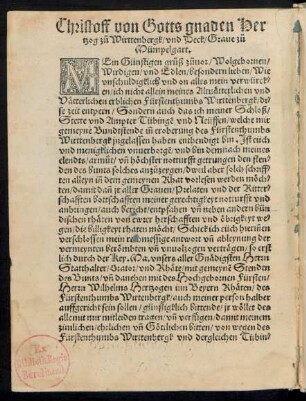 Christoff von Gotts gnaden Her
tzog zů Wirttenbergk/ vnd Teck/ Graue zů
Mümpelgart.
MEin Günstigen grůß zůuor/ Wolgebornen/
Würdigen/ vnd Edlen/ besondern lieben/ Wie
vnschuldigklich vnd on alles mein verwürck-
en/ ich nicht allein meines Altuätterlichen vnd
Vätterlichen erblichen Fürstenthumbs Wirttenbergk/ be-
seßt entpern/ Sondern auch das ich meiner Schloß/
Stette vnd Ampter Tübingē vnd Neiffen/ welche mir
gemeyne Bundtstende iñ eroberung des Fürstenthumbs
Wirttenbergk zůgelassen haben enthendigt bin/ Ist euch
vnd menigklichen vnuerborgē/ vnd bin dennach meines
elendts/ armůt/ vñ höchster notturfft getrungen den sten/
den des bunts solches anzůbringen/ dweil aber solch schriff-
ten alleyn iñ dem gemeynen Rhat verlesen werden möch
ten/ damit dañ jr aller Grauen/ Prelaten vnd der Ritter
schafften bottschafften meiner gerechtigkeyt notturfft vnd
anhungen/ auch bericht entpfahen vñ neben andern bün
dischen thäten von ewrer herrschafften vnd öbrigkeyt we
gen/ die billigkeyt rhaten möcht/ Schick ich euch hierin̄ en
verschlossen mein
vermeynten berůmbten vñ vnuolzogen vertrags/ so erst
lich durch der Key. Ma. vnsers aller Gnädigsten Herrn
Statthalter/ Orator/ vnd Rhäte/ mit gemeynē Stenden
des Bunts/ vñ danethen mit des Hochgebornen Fürsten/
Herrn Wilhelms Hertzogen inn Beyern Rhäten/ des
Fürstenthumbs Wirtenbergk/ auch meiner person halber
auffgericht sein sollen/ günstigklich bittende/ jr wöllet des
alles mit mir mitleiden tragen/ vñ verfügen/ damit meinem
zimlichen/ ehrlichen vñ Göttlichen bitten/ von wegen des
Fürstenthumbs Wirttenbergk vnd dergleichen Tübin/
Ex
Biblioth. Regia
Berolinensi.